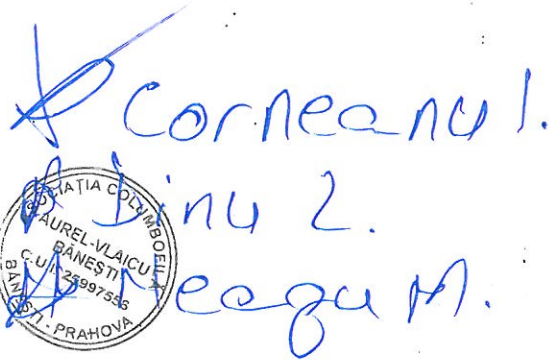 Corneanu I.
Dinu L.
Neagu M.
ASOCIATIA COLUMBOFILA
AUREL-VLAICU
BĂNEȘTI
C.U.I. 25997556
BĂNEȘTI - PRAHOVA